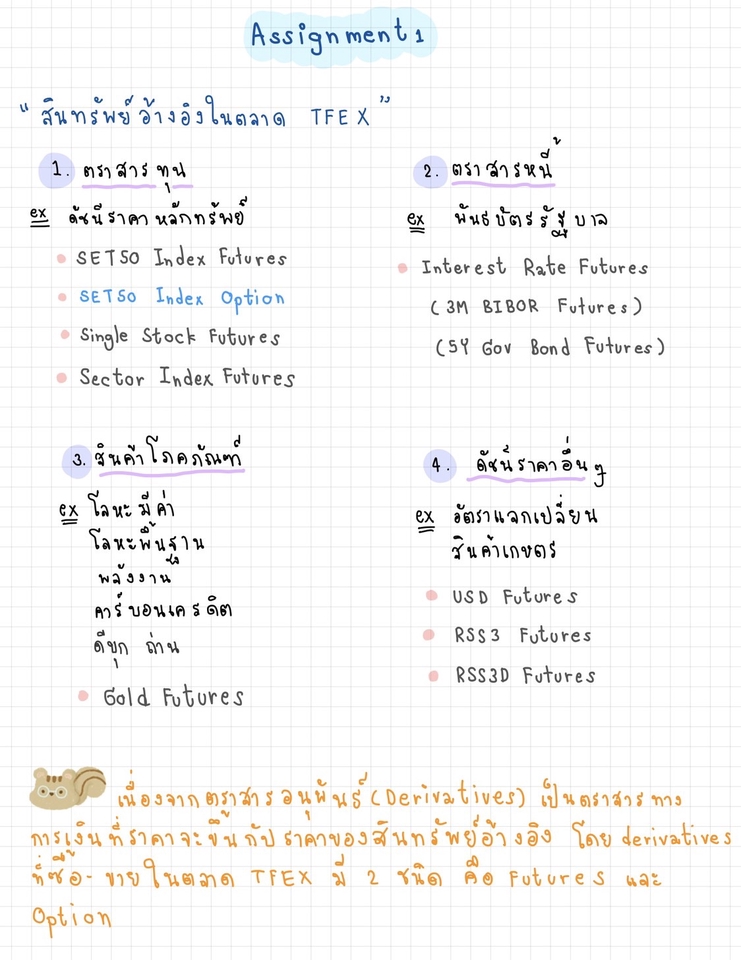 Assignment 1
" สินทรัพย์อ้างอิงในตลาด TFEX "
1. ตราสารทุน
ex ดัชนีราคาหลักทรัพย์
SET50 Index Futures
SET50 Index Option
Single Stock Futures
Sector Index Futures
2. ตราสารหนี้
ex พันธบัตรรัฐบาล
Interest Rate Futures
(3M BIBOR Futures)
(5Y Gov Bond Futures)
3. สินค้าโภคภัณฑ์
ex โลหะมีค่า
โลหะพื้นฐาน
พลังงาน
คาร์บอนเครดิต
ดีบุก ถ่าน
Gold Futures
4. ดัชนีราคาอื่นๆ
ex อัตราแลกเปลี่ยน
สินค้าเกษตร
USD Futures
RSS3 Futures
RSS3D Futures
เนื่องจากตราสารอนุพันธ์ (Derivatives) เป็นตราสารทาง
การเงินที่ราคาจะขึ้นกับราคาของสินทรัพย์อ้างอิง โดย derivatives
ที่ซื้อ-ขายในตลาด TFEX มี 2 ชนิด คือ Futures และ
Option